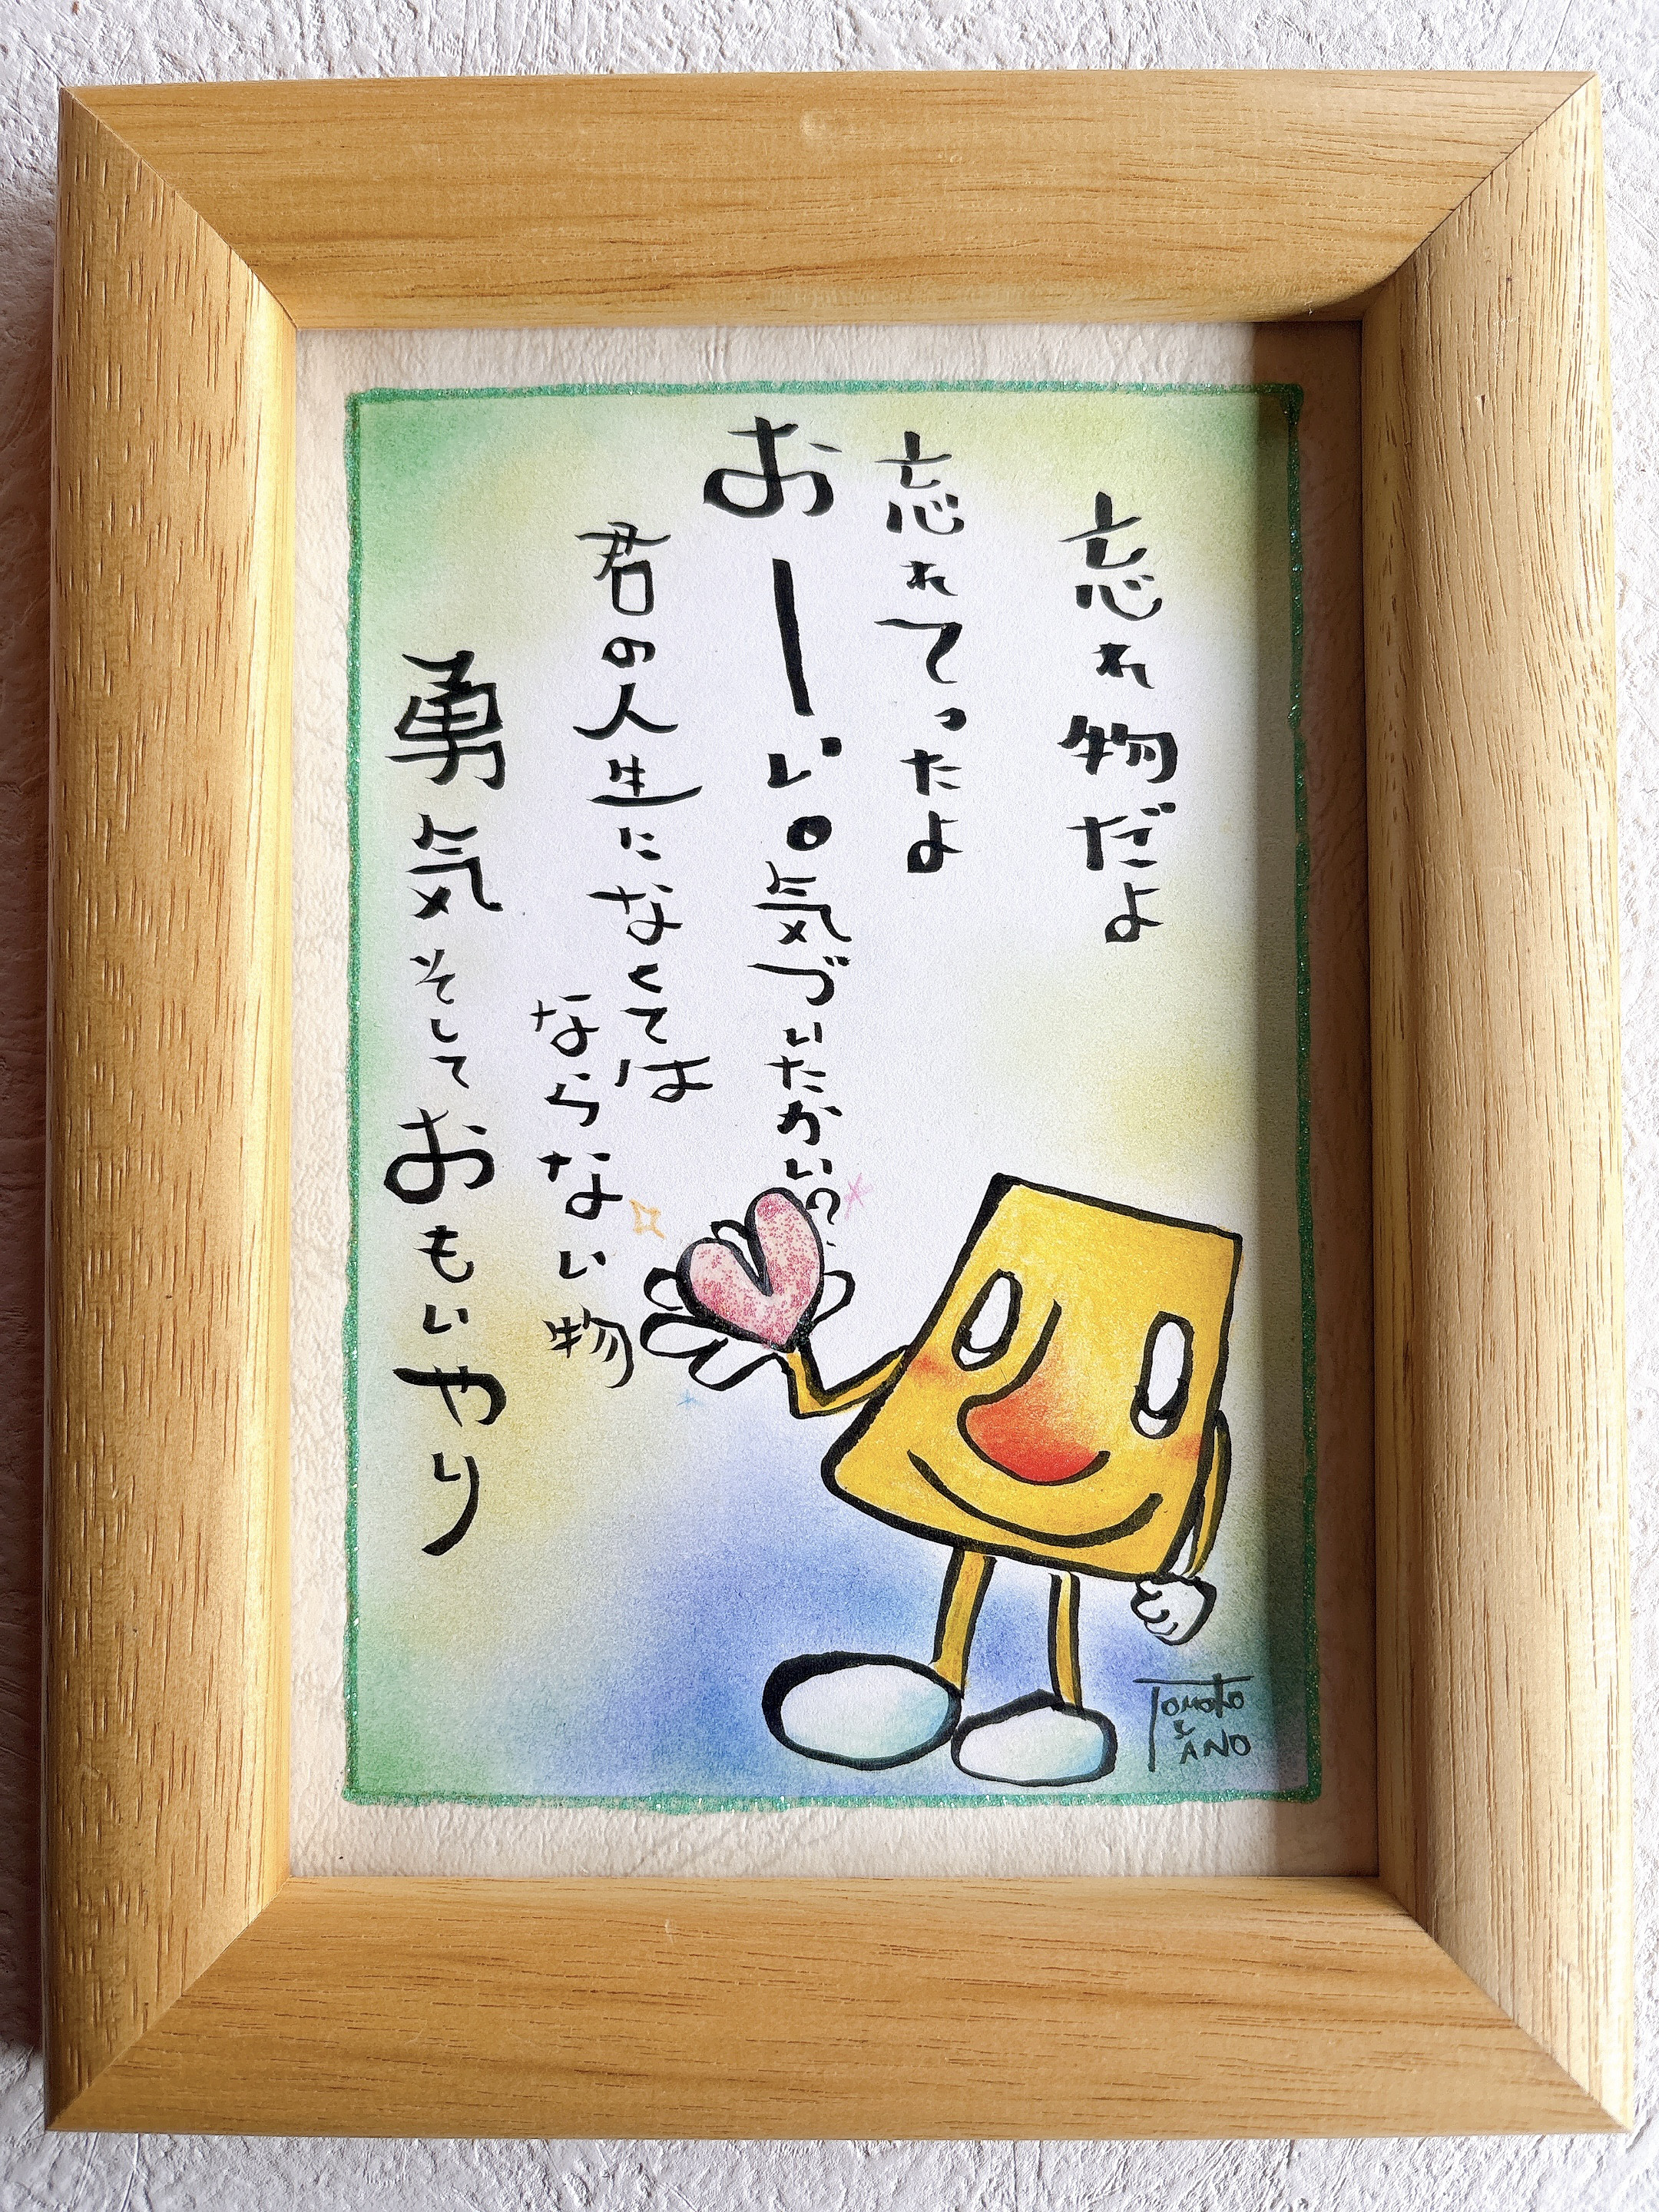 忘れ物だよ
忘れてったよ
おーい。気づいたかい?
君の人生になくては
ならない物
勇気そしておもいやり
TOMOKO
YANO